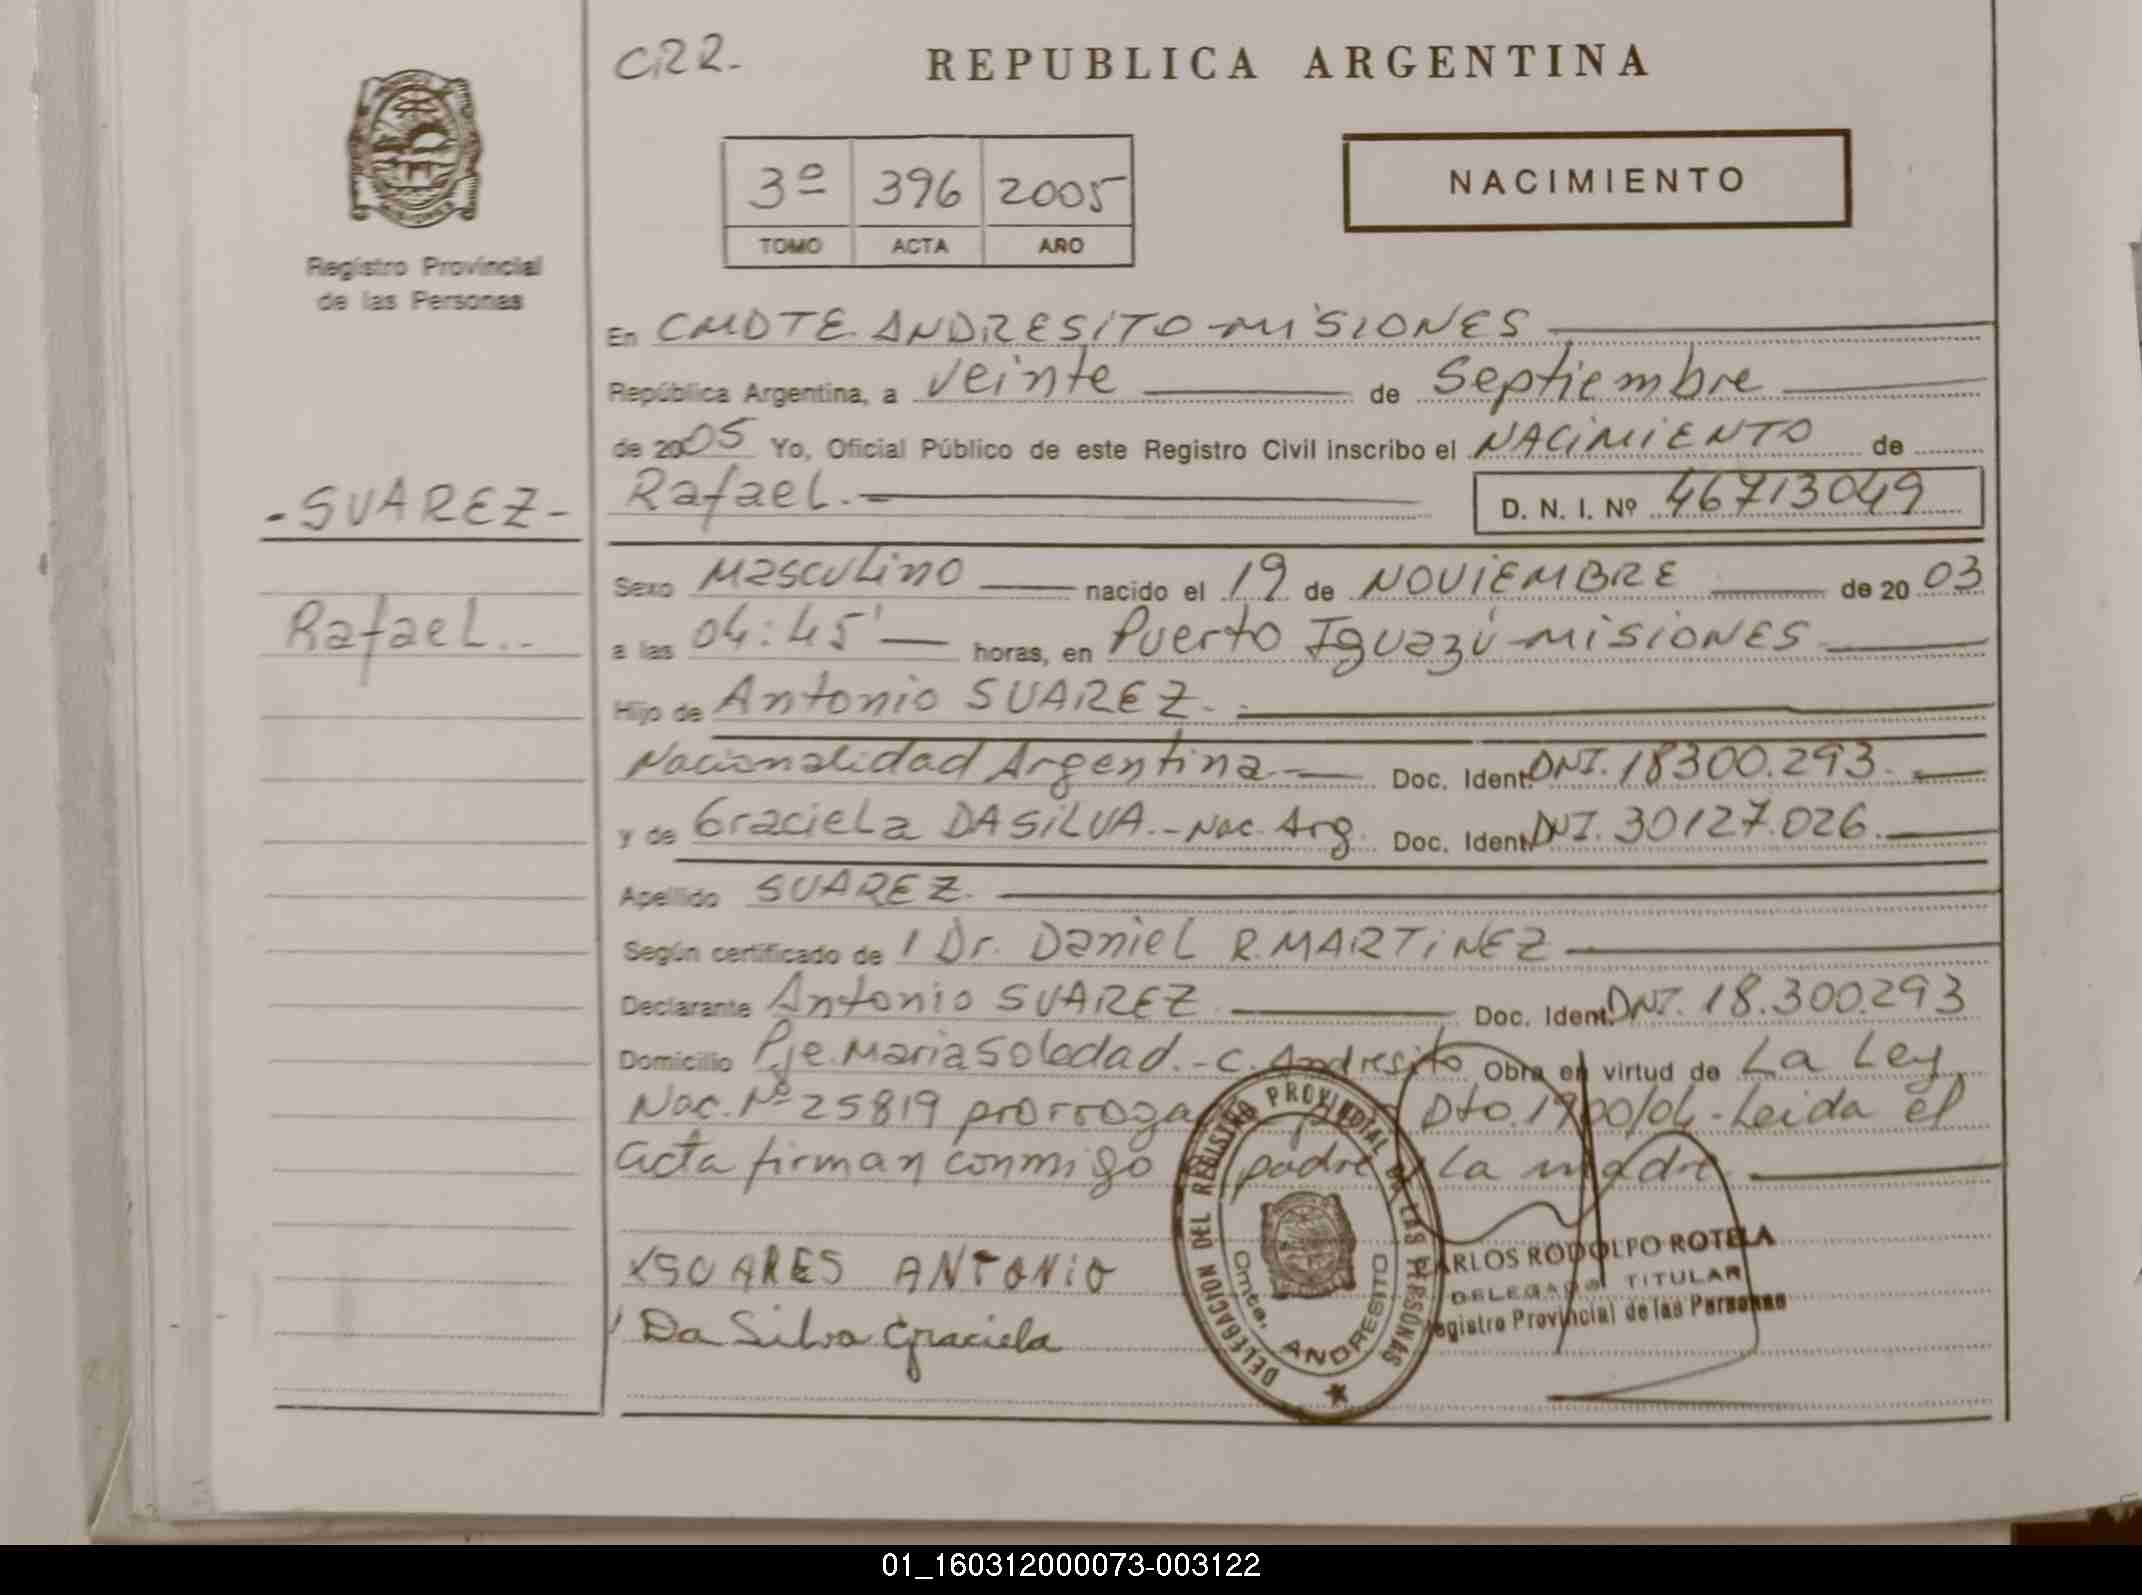 C.R.R.
REPUBLICA ARGENTINA
3º 396 2005
TOMO ACTA AÑO
NACIMIENTO
Registro Provincial
de las Personas
En CMDTE ANDRESITO-MISIONES
República Argentina, a veinte de Septiembre
de 2005 Yo, Oficial Público de este Registro Civil inscribo el NACIMIENTO de
-SUAREZ-
Rafael.
D. N. I. Nº 46713049
Rafael..
Sexo Masculino nacido el 19 de NOVIEMBRE de 2003
a las 04:45' horas, en Puerto Iguazú-MISIONES
Hijo de Antonio SUAREZ.
Nacionalidad Argentina Doc. Ident. DNI. 18300.293.
y de Graciela DA SILVA.- Nac. Arg. Doc. Ident. DNI. 30127.026.
Apellido SUAREZ.
Según certificado de / Dr. Daniel R. MARTINEZ
Declarante Antonio SUAREZ Doc. Ident. DNI. 18.300.293
Domicilio Pje. Maria Soledad.-C. Andresito Obra en virtud de La Ley
Nac. Nº 25819 prorroga Dto. 1900/04-Leida el
acta firman conmigo padre y La madre
XSUARES ANTONIO
Da Silva Graciela
DELEGACION DEL REGISTRO PROVINCIAL DE LAS PERSONAS
Cmte. ANDRESITO
CARLOS RODOLFO ROTELA
DELEGADO TITULAR
Registro Provincial de las Personas
01_160312000073-003122